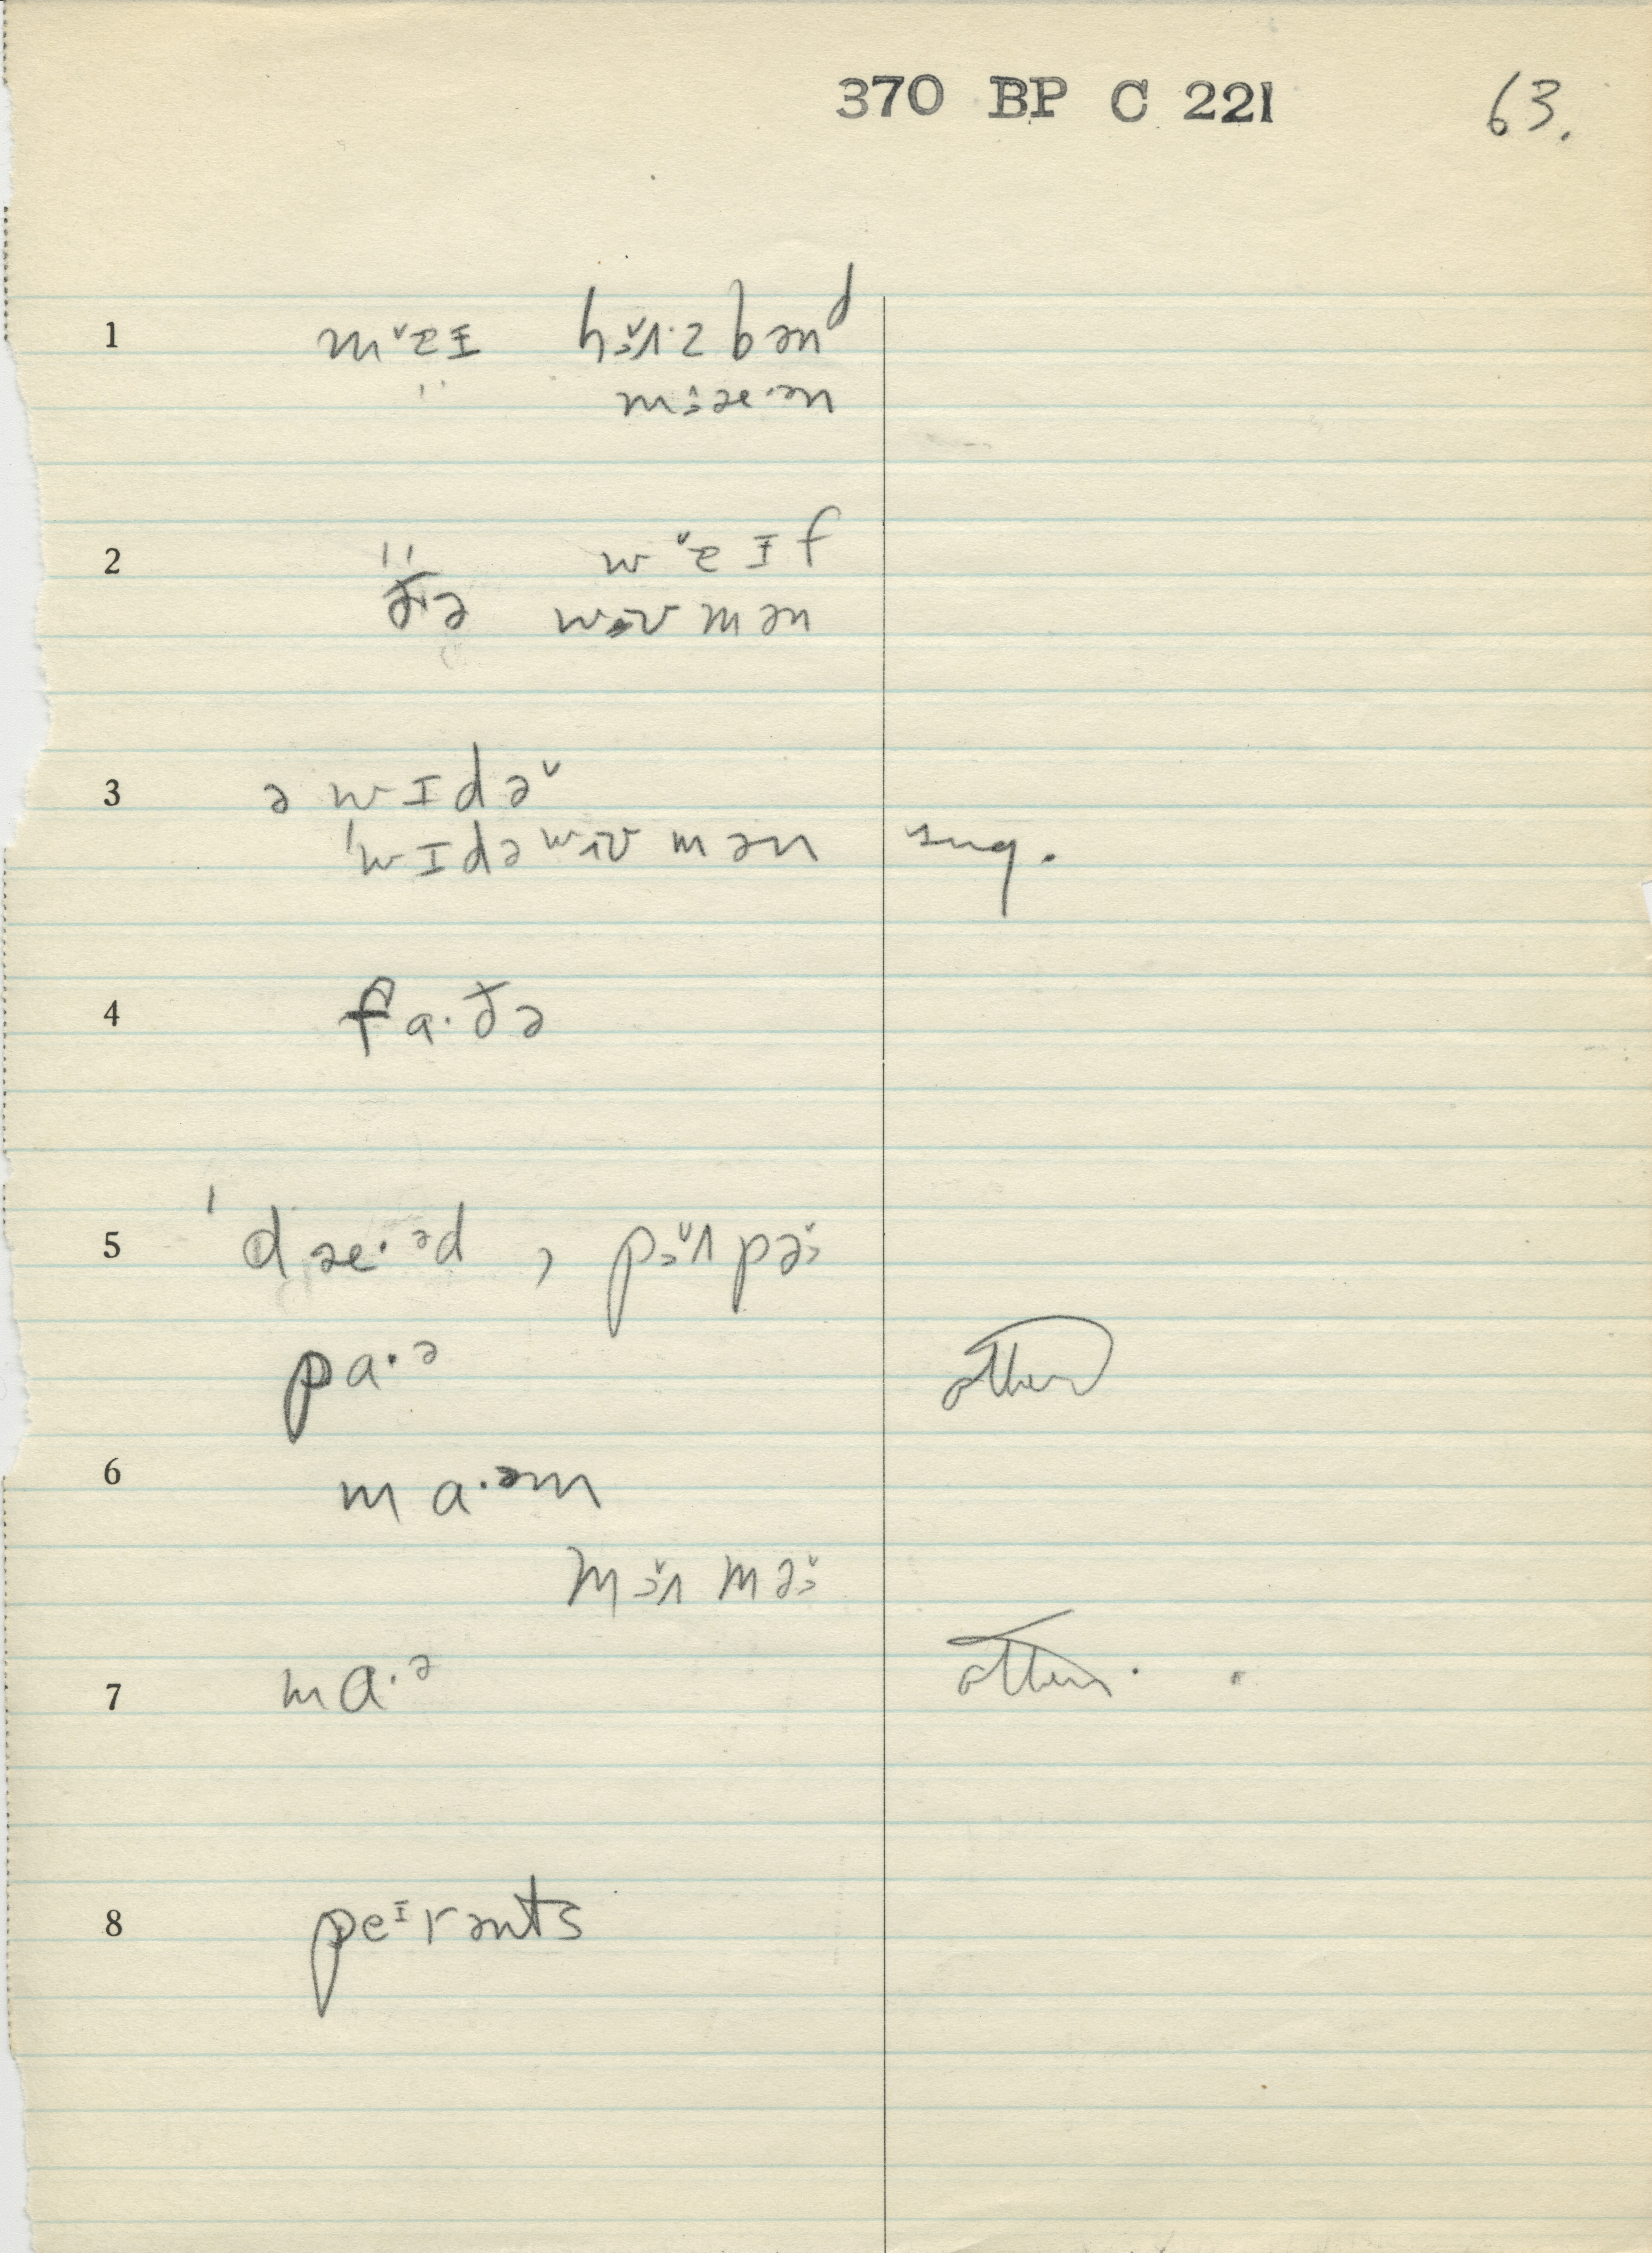 370 BP C 221 63.
1 mɐ̌ɪ hɜ̌ʌ·zbənᵈ
" mɜæ·ən
2 " wɐ̌ɪf
ðə wʊmən
3 ə wɪdə̌
ˈwɪdəwʊmən sug.
4 fa·ðə
5 ˈdæ·ᵊd , pɜ̌ʌpəɜ̌
pa·ᵊ others
6 ma·ᵊm
mɜ̌ʌməɜ̌
7 ma·ᵊ others.
8 peᶦrənts